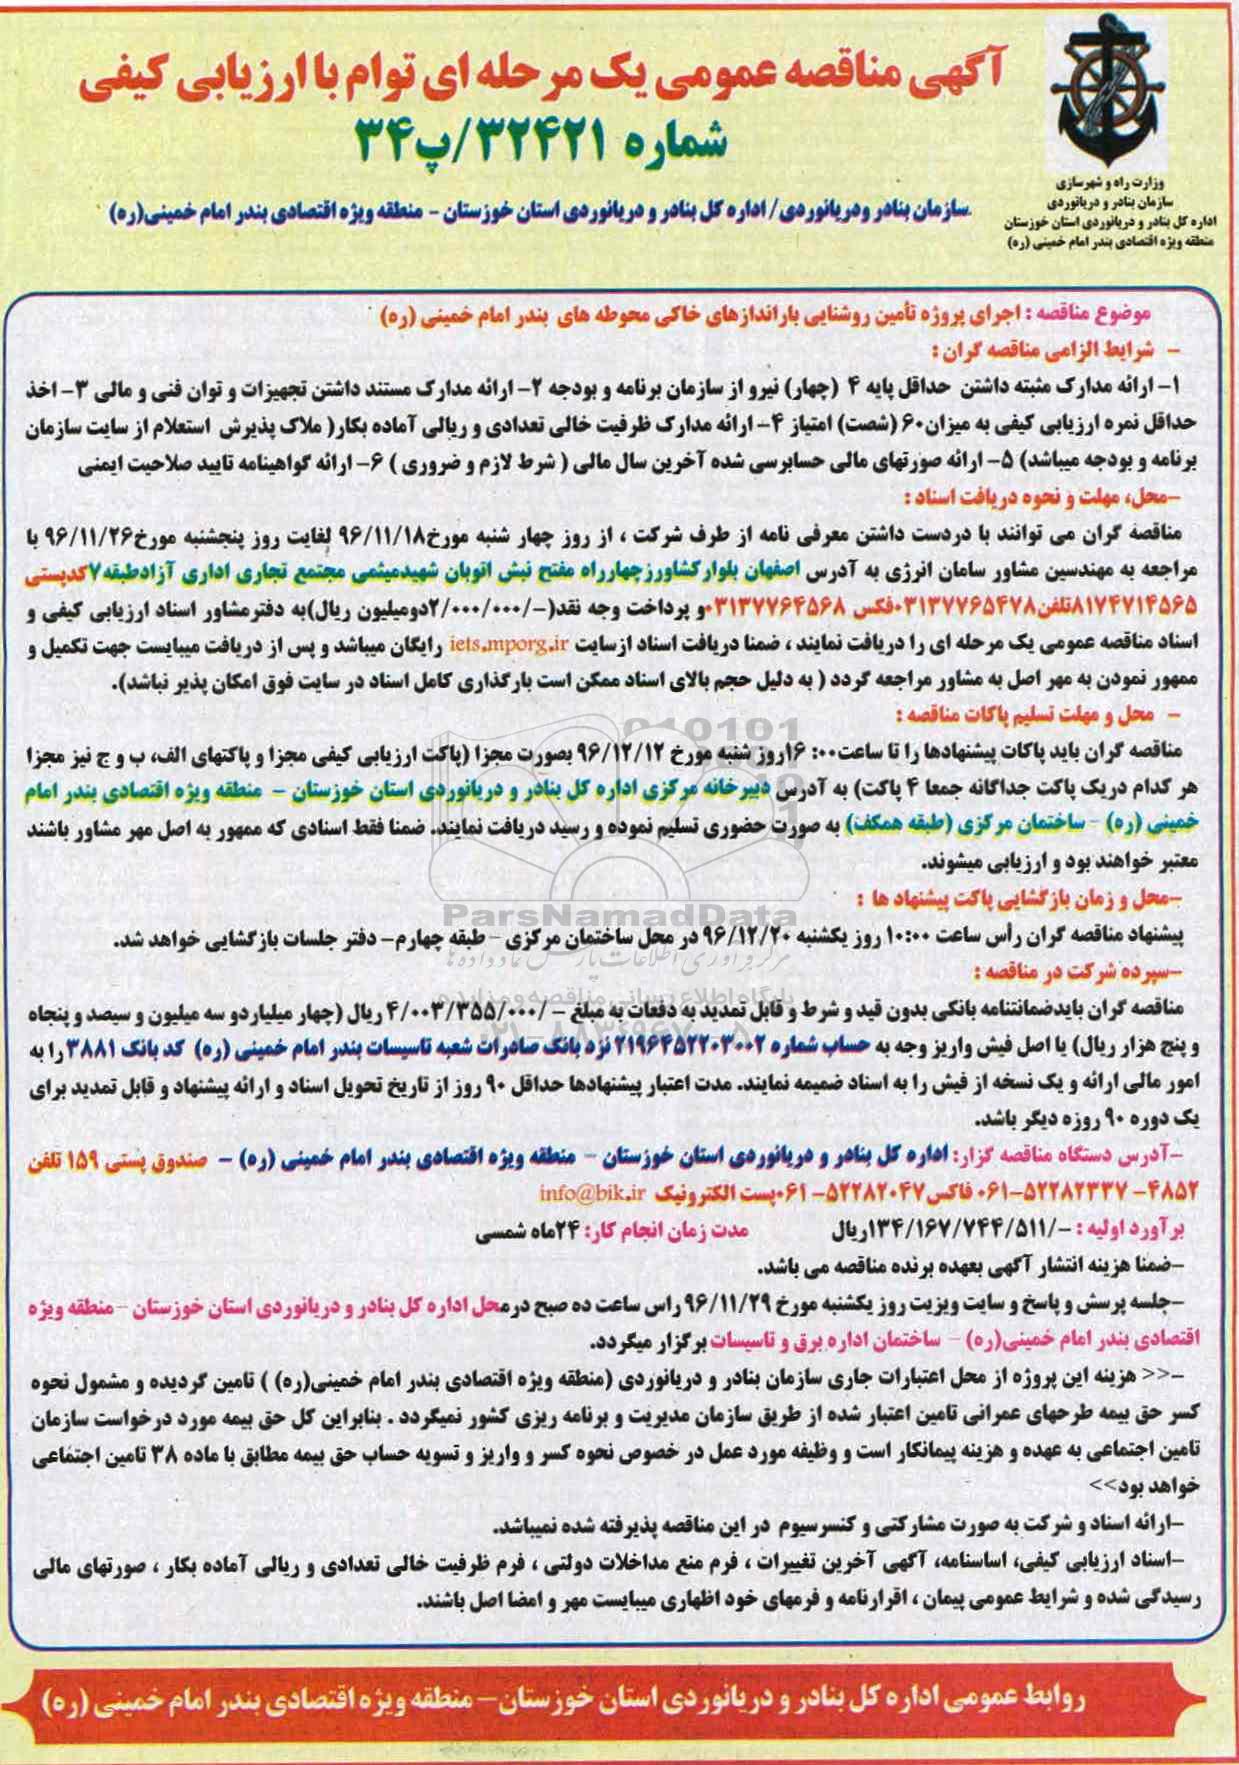 آگهی مناقصه عمومی یک مرحله ای توام با ارزیابی کیفی
شماره ۳۲۴۲۱/پ۳۴
سازمان بنادر ودریانوردی/ اداره کل بنادر و دریانوردی استان خوزستان - منطقه ویژه اقتصادی بندر امام خمینی(ره)
وزارت راه و شهرسازی
سازمان بنادر و دریانوردی
اداره کل بنادر و دریانوردی استان خوزستان
منطقه ویژه اقتصادی بندر امام خمینی (ره)
موضوع مناقصه : اجرای پروژه تأمین روشنایی باراندازهای خاکی محوطه های بندر امام خمینی (ره)
- شرایط الزامی مناقصه گران :
۱- ارائه مدارک مثبته داشتن حداقل پایه ۴ (چهار) نیرو از سازمان برنامه و بودجه ۲- ارائه مدارک مستند داشتن تجهیزات و توان فنی و مالی ۳- اخذ
حداقل نمره ارزیابی کیفی به میزان۶۰ (شصت) امتیاز ۴- ارائه مدارک ظرفیت خالی تعدادی و ریالی آماده بکار( ملاک پذیرش استعلام از سایت سازمان
برنامه و بودجه میباشد) ۵- ارائه صورتهای مالی حسابرسی شده آخرین سال مالی ( شرط لازم و ضروری ) ۶- ارائه گواهینامه تایید صلاحیت ایمنی
-محل، مهلت و نحوه دریافت اسناد :
مناقصه گران می توانند با دردست داشتن معرفی نامه از طرف شرکت ، از روز چهار شنبه مورخ۹۶/۱۱/۱۸ لغایت روز پنجشنبه مورخ۹۶/۱۱/۲۶ با
مراجعه به مهندسین مشاور سامان انرژی به آدرس اصفهان بلوارکشاورزچهارراه مفتح نبش اتوبان شهیدمیثمی مجتمع تجاری اداری آزادطبقه۷کدپستی
۸۱۷۴۷۱۴۵۶۵تلفن۰۳۱۳۷۷۶۵۴۷۸فکس ۰۳۱۳۷۷۶۴۵۶۸و پرداخت وجه نقد(-/۲/۰۰۰/۰۰۰دومیلیون ریال)به دفترمشاور اسناد ارزیابی کیفی و
اسناد مناقصه عمومی یک مرحله ای را دریافت نمایند ، ضمنا دریافت اسناد ازسایت iets.mporg.ir رایگان میباشد و پس از دریافت میبایست جهت تکمیل و
ممهور نمودن به مهر اصل به مشاور مراجعه گردد ( به دلیل حجم بالای اسناد ممکن است بارگذاری کامل اسناد در سایت فوق امکان پذیر نباشد).
- محل و مهلت تسلیم پاکات مناقصه :
مناقصه گران باید پاکات پیشنهادها را تا ساعت۱۶:۰۰روز شنبه مورخ ۹۶/۱۲/۱۲ بصورت مجزا (پاکت ارزیابی کیفی مجزا و پاکتهای الف، ب و ج نیز مجزا
هر کدام دریک پاکت جداگانه جمعا ۴ پاکت) به آدرس دبیرخانه مرکزی اداره کل بنادر و دریانوردی استان خوزستان - منطقه ویژه اقتصادی بندر امام
خمینی (ره) - ساختمان مرکزی (طبقه همکف) به صورت حضوری تسلیم نموده و رسید دریافت نمایند. ضمنا فقط اسنادی که ممهور به اصل مهر مشاور باشند
معتبر خواهند بود و ارزیابی میشوند.
ParsNamadData
-محل و زمان بازگشایی پاکت پیشنهاد ها :
پیشنهاد مناقصه گران رأس ساعت ۱۰:۰۰ روز یکشنبه ۹۶/۱۲/۲۰ در محل ساختمان مرکزی - طبقه چهارم- دفتر جلسات بازگشایی خواهد شد.
مرکز فرآوری اطلاعات پارس نماد داده ها
-سپرده شرکت در مناقصه :
پایگاه اطلاع رسانی مناقصه و مزایده
مناقصه گران بایدضمانتنامه بانکی بدون قید و شرط و قابل تمدید به دفعات به مبلغ -/۴/۰۰۳/۳۵۵/۰۰۰ ریال (چهار میلیاردو سه میلیون و سیصد و پنجاه
و پنج هزار ریال) یا اصل فیش واریز وجه به حساب شماره ۲۱۹۶۴۵۲۲۰۳۰۰۲ نزد بانک صادرات شعبه تاسیسات بندر امام خمینی (ره) کد بانک ۳۸۸۱ را به
امور مالی ارائه و یک نسخه از فیش را به اسناد ضمیمه نمایند. مدت اعتبار پیشنهادها حداقل ۹۰ روز از تاریخ تحویل اسناد و ارائه پیشنهاد و قابل تمدید برای
یک دوره ۹۰ روزه دیگر باشد.
-آدرس دستگاه مناقصه گزار: اداره کل بنادر و دریانوردی استان خوزستان - منطقه ویژه اقتصادی بندر امام خمینی (ره) - صندوق پستی ۱۵۹ تلفن
۴۸۵۲- ۰۶۱-۵۲۲۸۲۳۳۷ فاکس۰۶۱-۵۲۲۸۲۰۴۷پست الکترونیک info@bik.ir
برآورد اولیه : -/۱۳۴/۱۶۷/۷۴۴/۵۱۱ریال مدت زمان انجام کار: ۲۴ماه شمسی
-ضمنا هزینه انتشار آگهی بعهده برنده مناقصه می باشد.
-جلسه پرسش و پاسخ و سایت ویزیت روز یکشنبه مورخ ۹۶/۱۱/۲۹ راس ساعت ده صبح درمحل اداره کل بنادر و دریانوردی استان خوزستان -منطقه ویژه
اقتصادی بندر امام خمینی(ره) - ساختمان اداره برق و تاسیسات برگزار میگردد.
-<< هزینه این پروژه از محل اعتبارات جاری سازمان بنادر و دریانوردی (منطقه ویژه اقتصادی بندر امام خمینی(ره) ) تامین گردیده و مشمول نحوه
کسر حق بیمه طرحهای عمرانی تامین اعتبار شده از طریق سازمان مدیریت و برنامه ریزی کشور نمیگردد . بنابراین کل حق بیمه مورد درخواست سازمان
تامین اجتماعی به عهده و هزینه پیمانکار است و وظیفه مورد عمل در خصوص نحوه کسر و واریز و تسویه حساب حق بیمه مطابق با ماده ۳۸ تامین اجتماعی
خواهد بود>>
-ارائه اسناد و شرکت به صورت مشارکتی و کنسرسیوم در این مناقصه پذیرفته شده نمیباشد.
-اسناد ارزیابی کیفی، اساسنامه، آگهی آخرین تغییرات ، فرم منع مداخلات دولتی ، فرم ظرفیت خالی تعدادی و ریالی آماده بکار ، صورتهای مالی
رسیدگی شده و شرایط عمومی پیمان ، اقرارنامه و فرمهای خود اظهاری میبایست مهر و امضا اصل باشند.
روابط عمومی اداره کل بنادر و دریانوردی استان خوزستان- منطقه ویژه اقتصادی بندر امام خمینی (ره)